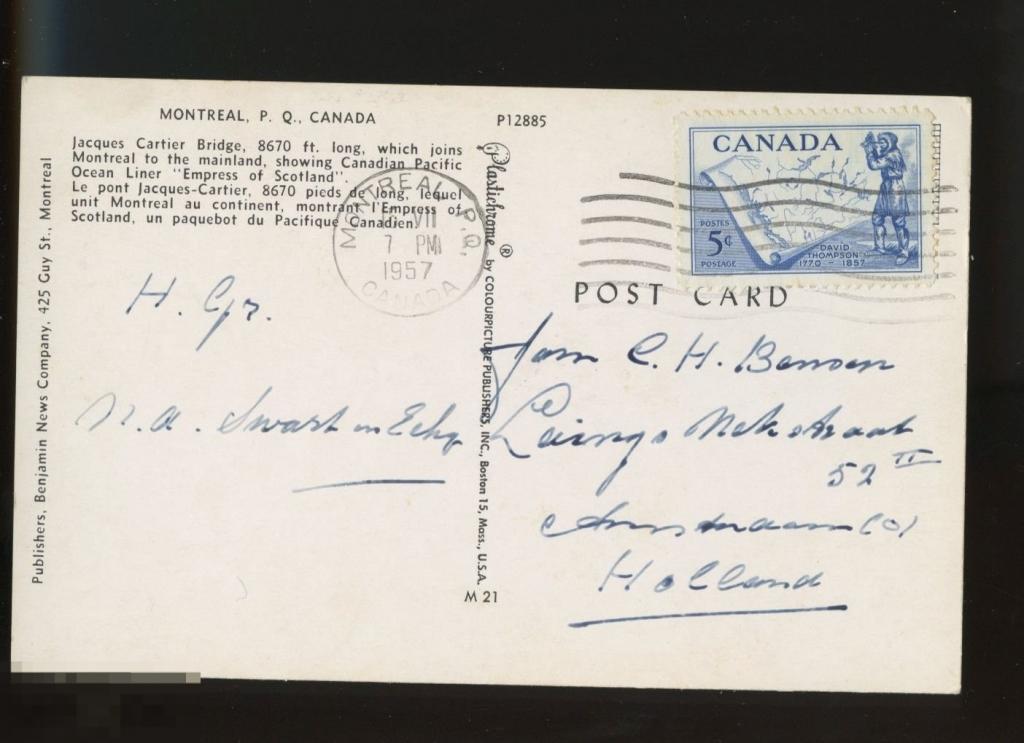 MONTREAL, P. Q., CANADA
P12885
Jacques Cartier Bridge, 8670 ft. long, which joins
Montreal to the mainland, showing Canadian Pacific
Ocean Liner "Empress of Scotland".
Le pont Jacques-Cartier, 8670 pieds de long, lequel
unit Montreal au continent, montrant l'Empress of
Scotland, un paquebot du Pacifique Canadien.
Publishers, Benjamin News Company, 425 Guy St., Montreal
Plastichrome ® by COLOURPICTURE PUBLISHERS, INC., Boston 15, Mass., U.S.A.
M 21
MONTREAL, P.Q.
VII
7 PM
1957
CANADA
CANADA
POSTES
5¢
POSTAGE
DAVID
THOMPSON
1770 - 1857
POST CARD
H. Gr.
Swart en
Fam C. H. Bensen
Laings Nekstraat
52 II
Amsterdam (O)
Holland